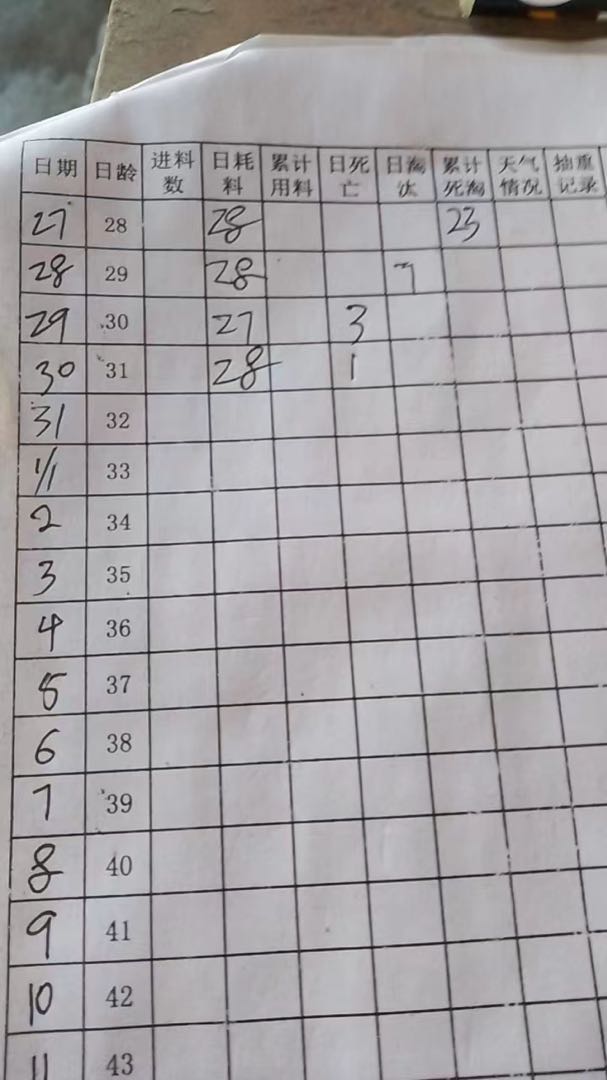 日期 日龄 进料数 日耗料 累计用料 日死亡 日淘汰 累计死淘 天气情况 抽重记录
27 28 28 23
28 29 28 7
29 30 27 3
30 31 28 1
31 32
1/1 33
2 34
3 35
4 36
5 37
6 38
7 39
8 40
9 41
10 42
11 43